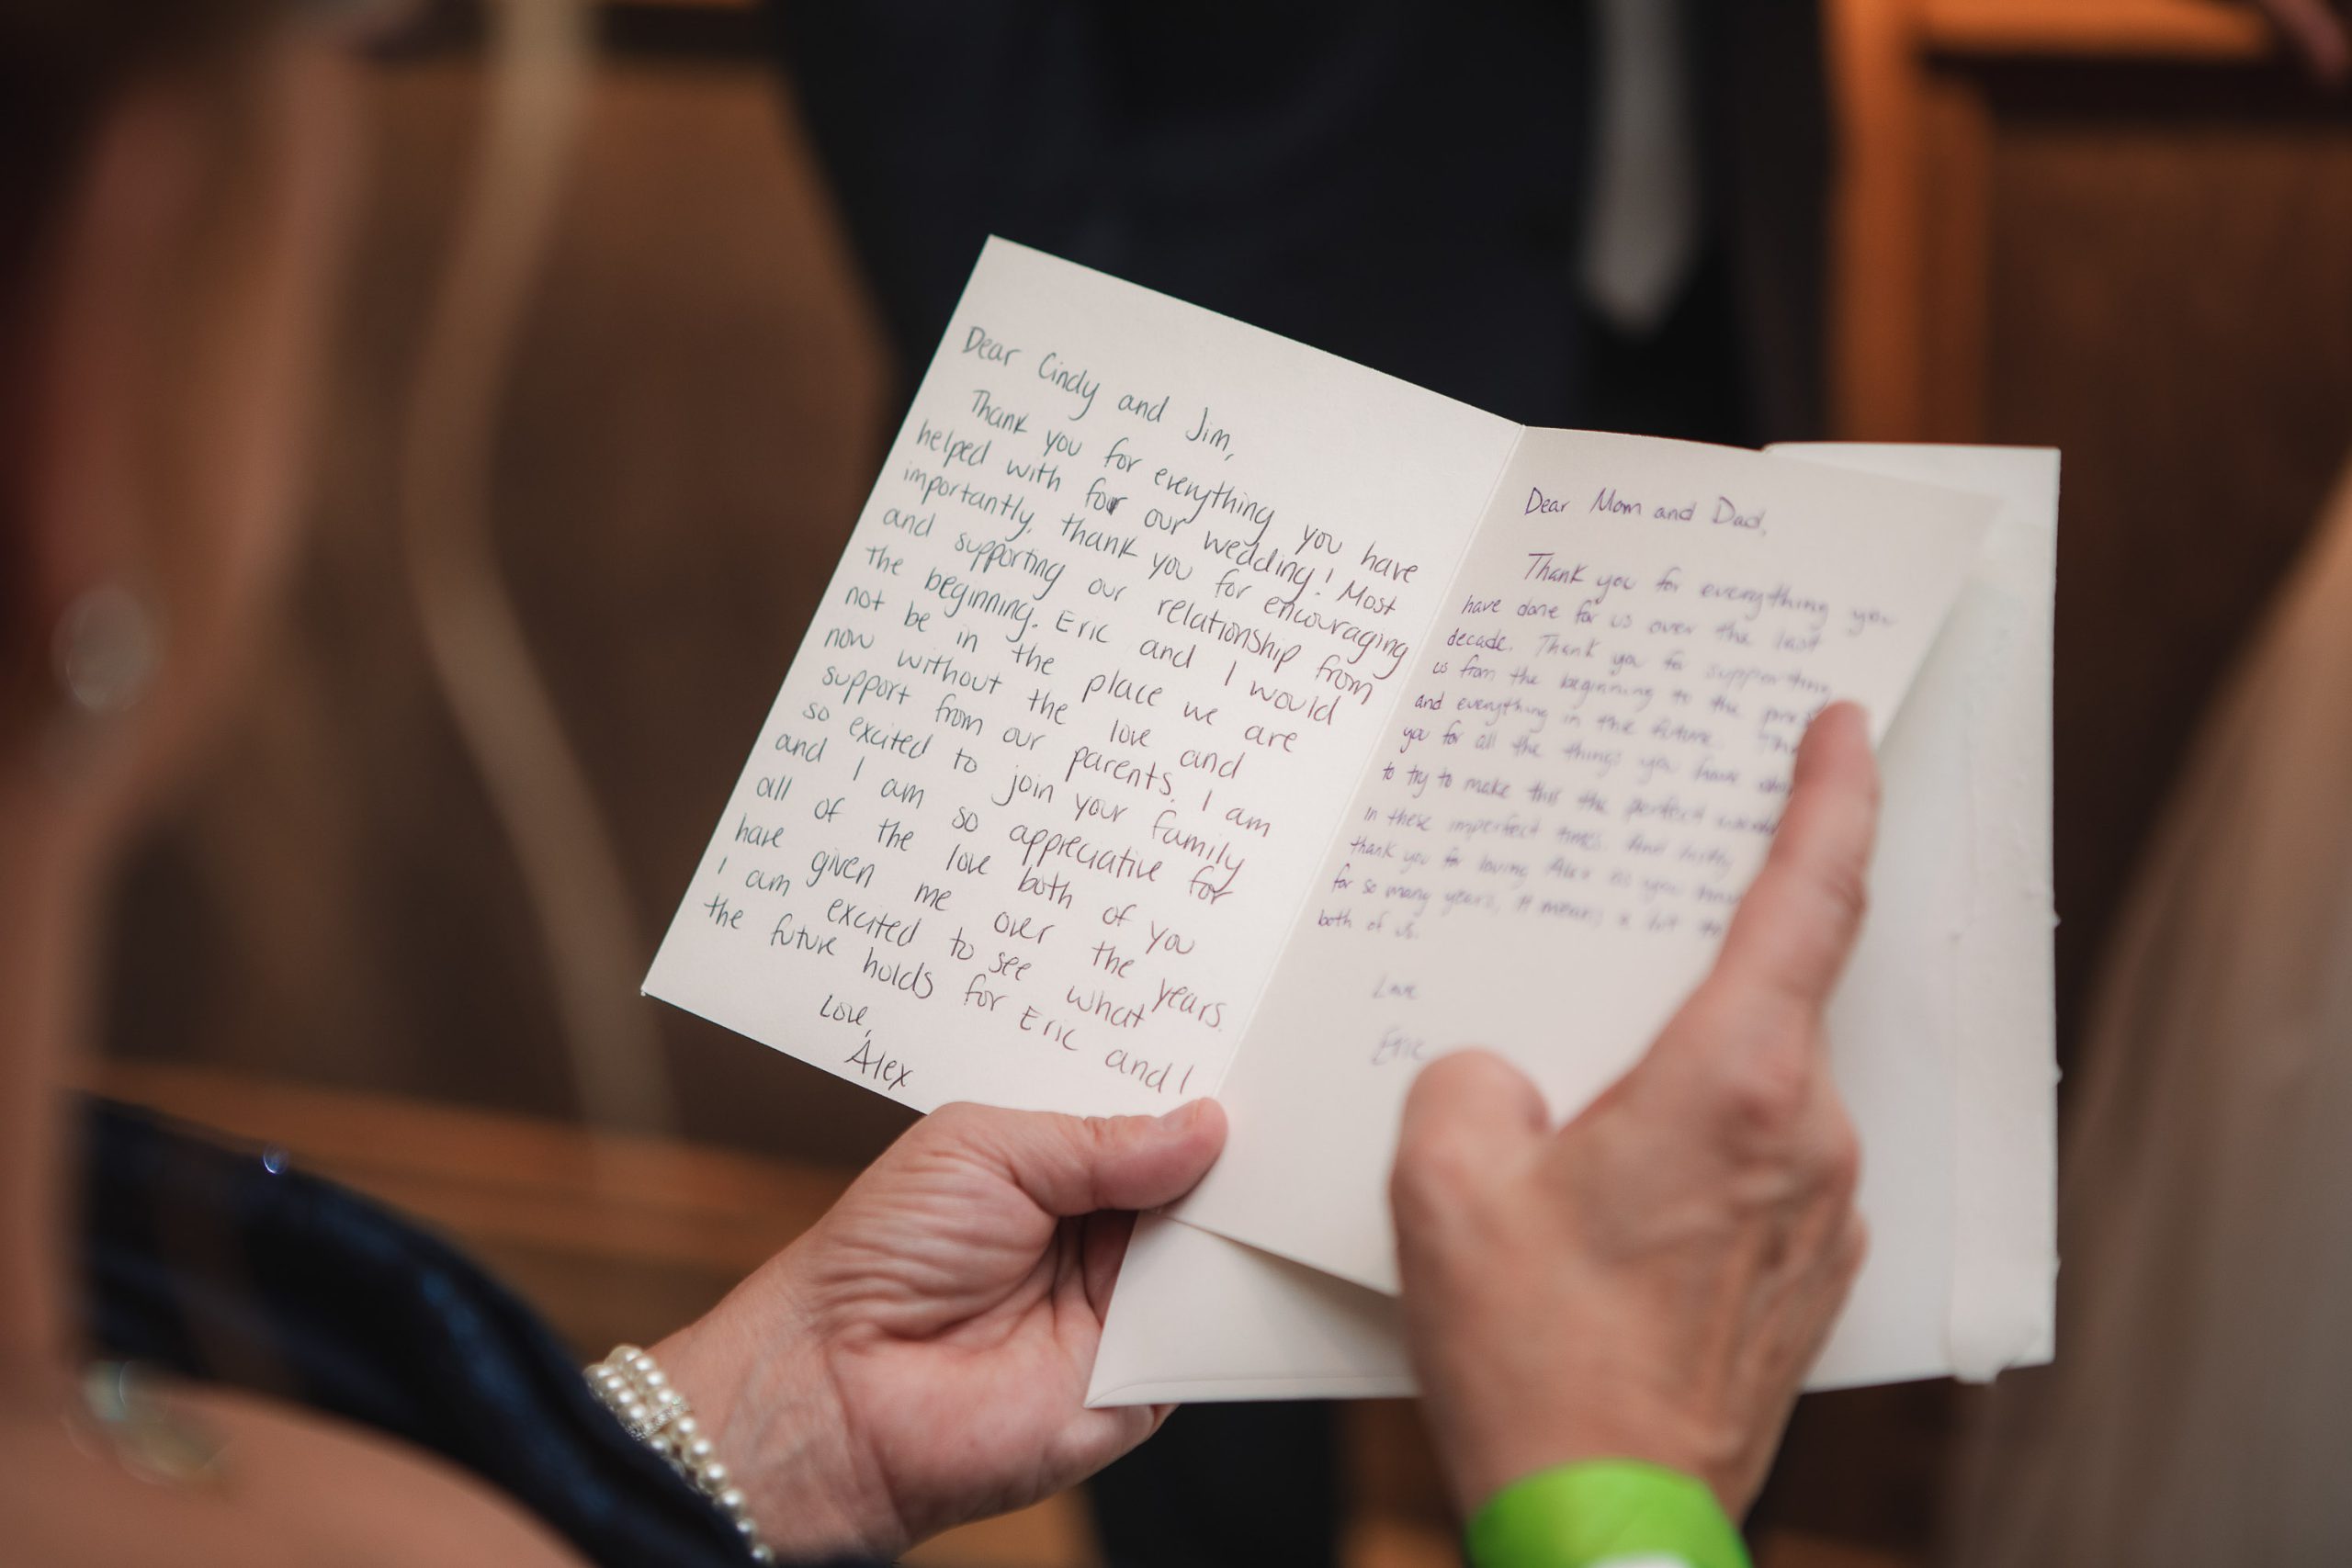 Dear Cindy and Jim,
Thank you for everything you have
helped with for our wedding! Most
importantly, thank you for encouraging
and supporting our relationship from
the beginning. Eric and I would
not be in the place we are
now without the love and
support from our parents. I am
so excited to join your family
and I am so appreciative for
all of the love both of you
have given me over the years.
I am excited to see what
the future holds for Eric and I
Love,
Alex
Dear Mom and Dad,
Thank you for everything you
have done for us over the last
decade. Thank you for supporting
us from the beginning to the
and everything in the future.
you for all the things you have
to try to make this the perfect
in these imperfect times. And
thank you for loving Alex as you have
for so many years, it means a lot to
both of us.
Love
Eric